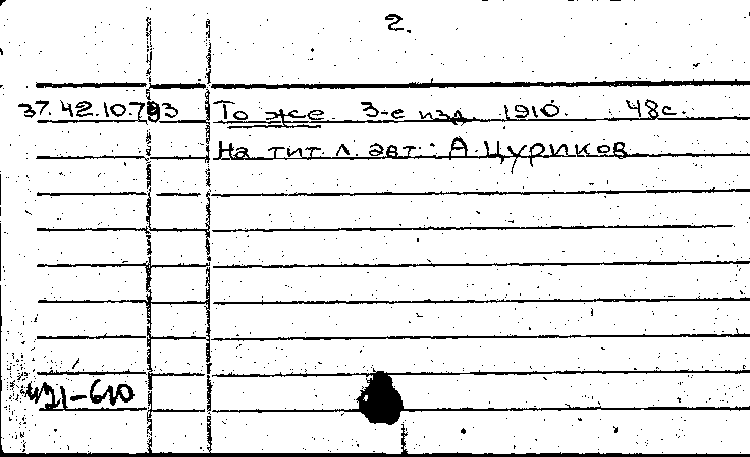 2.
37.42.10.793 То же 3-е изд 1910. 48с.
На тит л. авт.: А Цуриков